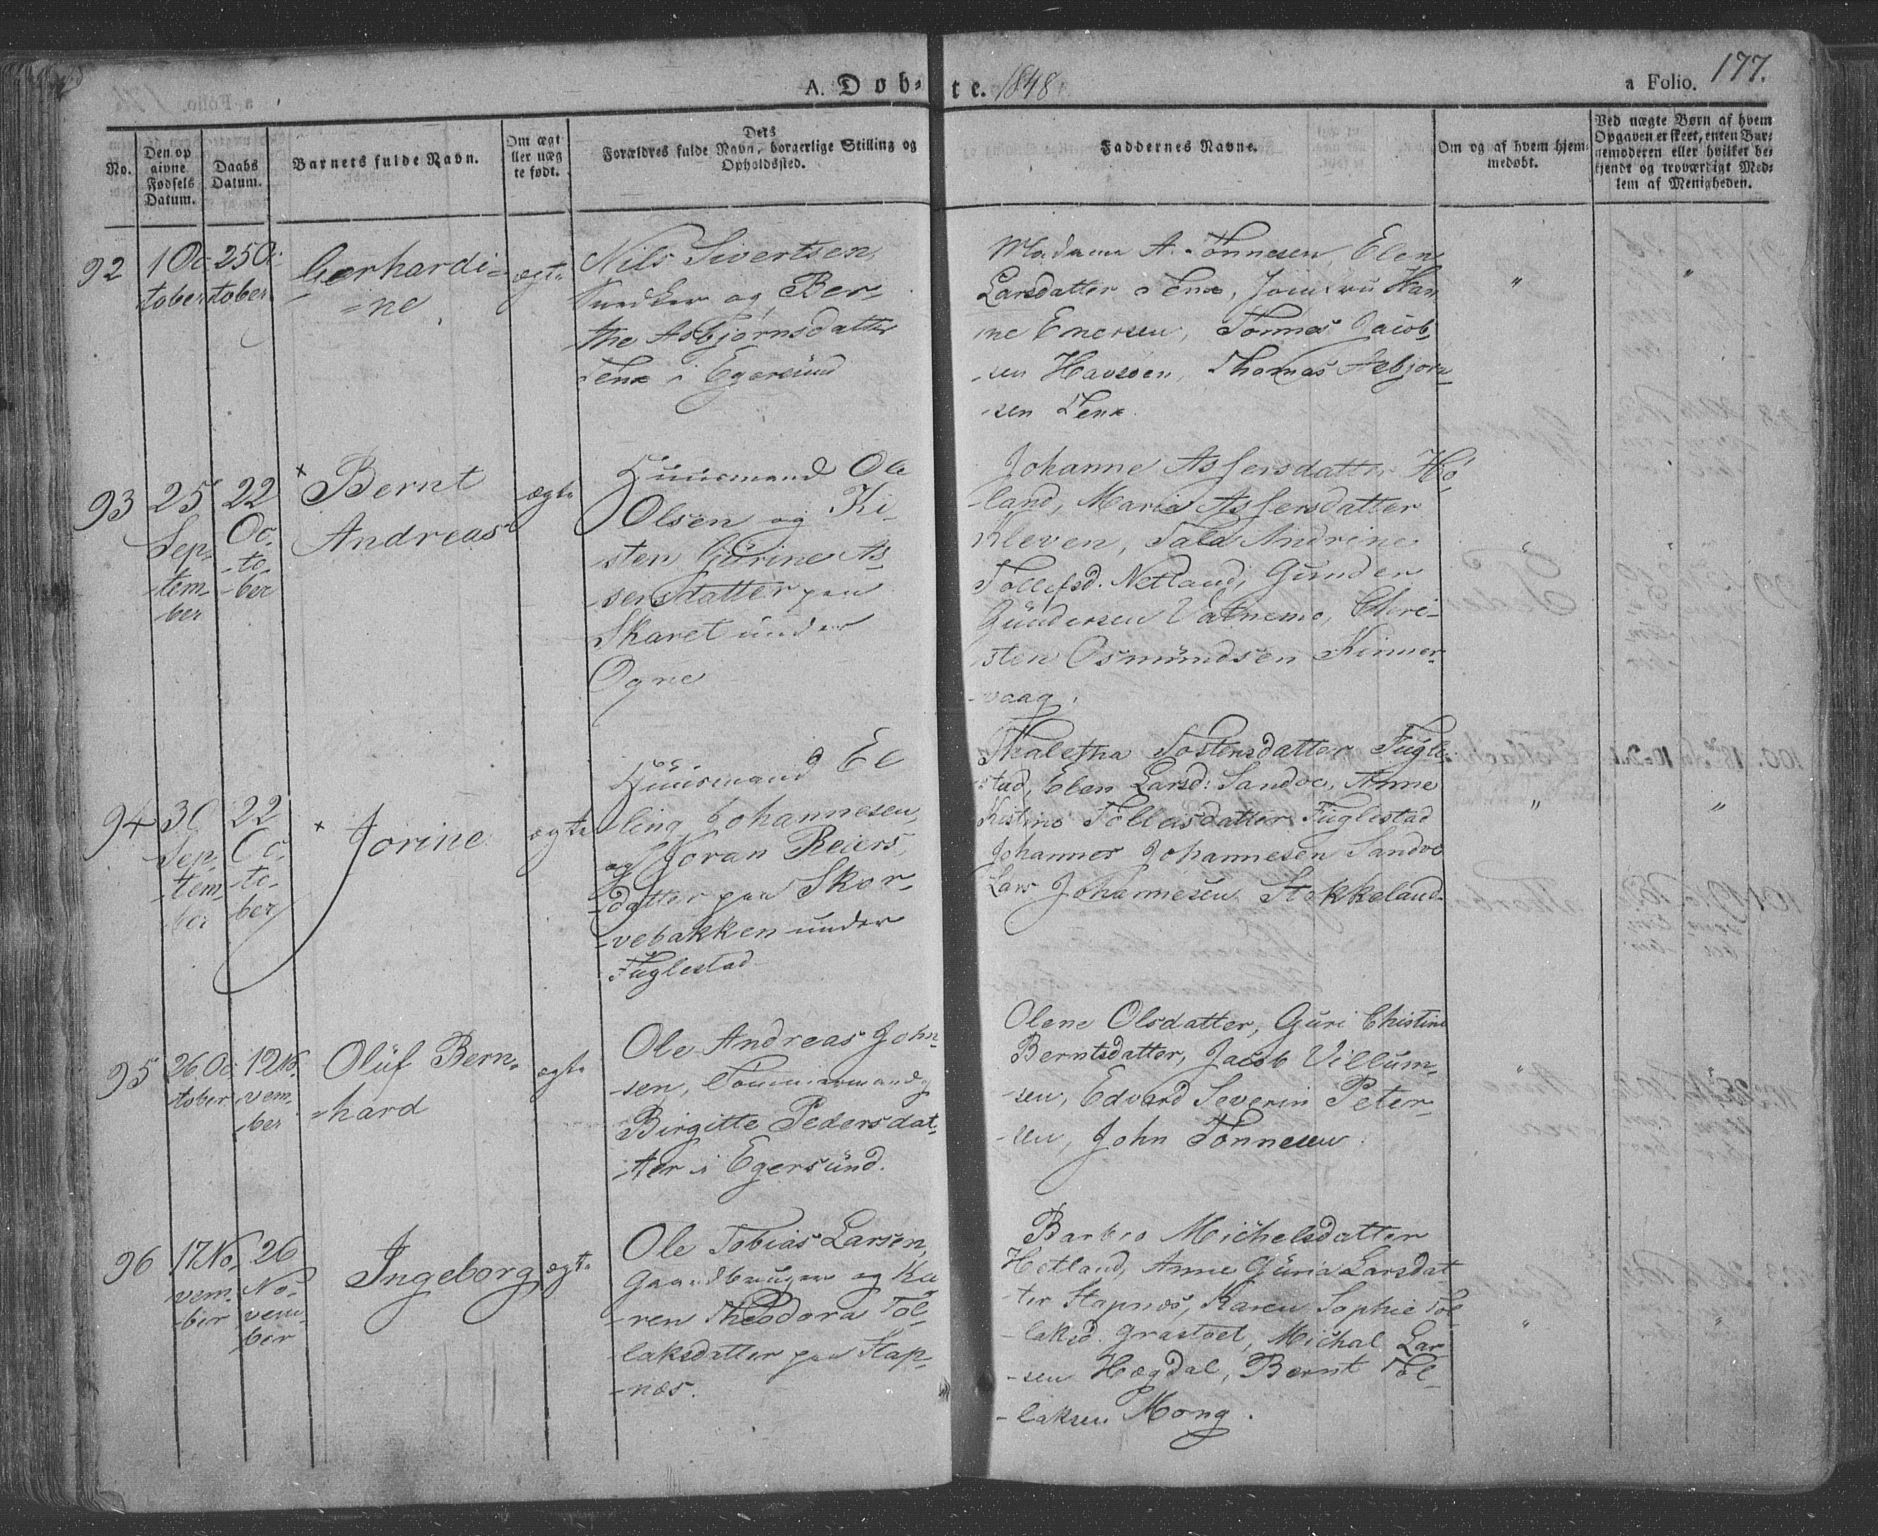 A. Dob-te. 1848. a Folio. 177.
No.
Den op
givne
Fødsels
Datum.
Daabs
Datum.
Barnets fulde Navn.
Om ægt
eller uæg
te født.
Dets
Forældres fulde Navn, borgerlige Stilling og
Opholdssted.
Faddernes Navne.
Om og af hvem hjem-
medøbt.
Ved uægte Børn af hvem
Opgaven er skeet, enten Bar-
nemoderen eller hvilket be-
kjendt og troværdigt Med-
lem af Menigheden.
92
1 Oc
tober
25 Oc
tober
Gerhardi-
-ne
ægte
Nils Sivertsen,
Snedker og Ber-
the Asbjørnsdatter
Tene i Egersund
Madame A. Tønnesen, Elen
Larsdatter Tene, Jomfru Han
ne Emersen, Tønnes Jacob-
-sen Havsøen, Thomas Asbjørn
-sen Tene.
"
"
93
25
Sep-
-tem-
ber
22
Oc-
-to-
-ber
× Bernt
Andreas
ægte
Huusmand Ole
Olsen og Ki-
sten Gurine As-
sersdatter paa
Skaret under
Ogne
Johanne Assersdatter Hø-
-land, Marie Assersdatter
Kleven, Tale Andrine
Tollefsd. Netland, Gunder
Gundersen Vatnemo, Chri-
sten Osmundsen Kinner-
-vaag.
94
30
Sep-
tem-
ber
22
Oc-
to-
ber
× Jorine
ægte
Huusmand El
-ling Johannesen,
og Joran Reiers-
datter paa Skor-
-vebakken under
Fuglestad
Thaletha Tostensdatter Fugle-
stad, Elen Larsd: Sandve, Anne
Kistine Tolleisdatter Fuglestad
Johannes Johannesen Sandve
Lars Johannesen Stokkeland.
"
"
95
26 Oc
tober
12 No-
vem-
ber
Oluf Bern-
-hard
ægte
Ole Andreas John-
sen, Tømmermand og
Birgitte Pedersdat-
-ter i Egersund.
Olene Olsdatter, Guri Christine
Berntsdatter, Jacob Villum-
-sen, Edvard Severin Peter-
-sen, John Tønnesen.
"
96
17 No-
vem-
-ber
26
No-
vem-
ber
Ingeborg
ægte
Ole Tobias Larsen,
Gaardbruger og Ka
-ren Theodora Tol-
laksdatter paa Stap-
-næs.
Barbro Michelsdatter
Hetland, Anne Guria Larsdat
ter Stapnæs, Karen Sophie Tol-
-laksd. Grastvet, Michal Lar-
-sen Hægdal, Bernt Tol-
-laksen Mong.
"
"